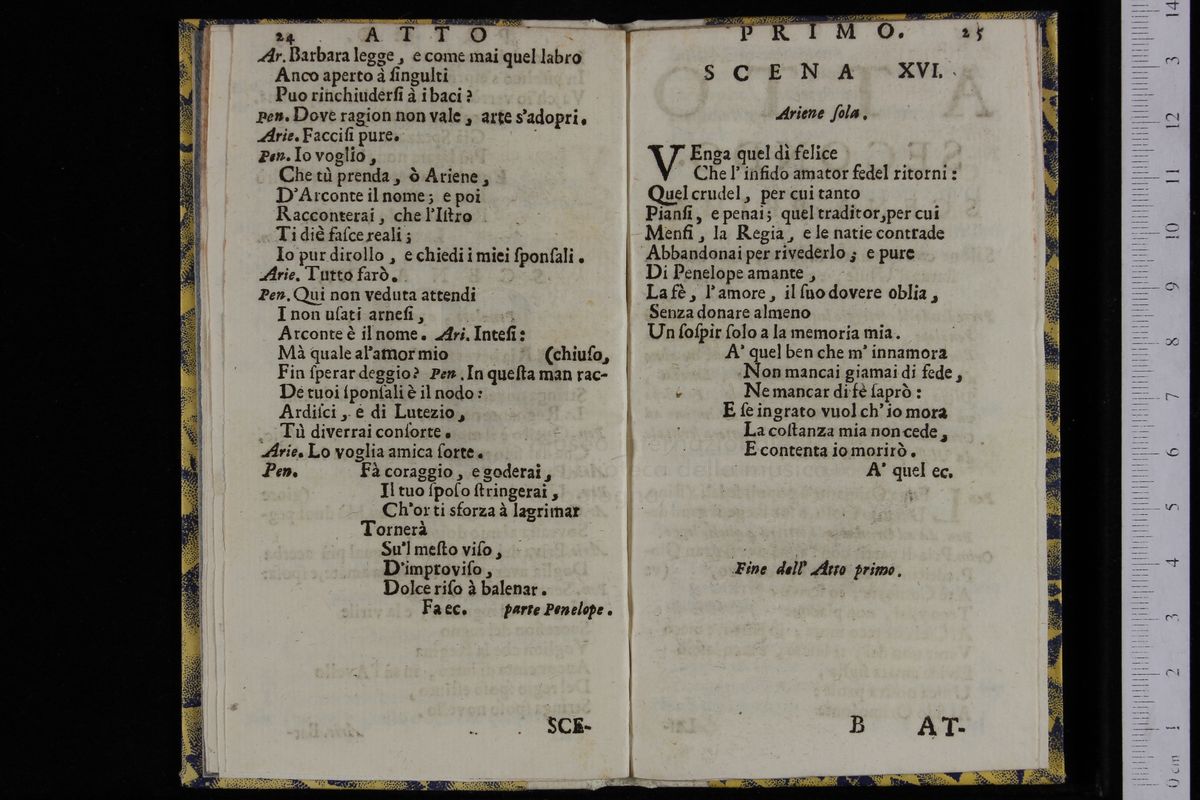 24 ATTO
Ar. Barbara legge, e come mai quel labro
Anco aperto à ſingulti
Puo rinchiuderſi à i baci?
Pen. Dove ragion non vale, arte s'adopri.
Arie. Facciſi pure.
Pen. Io voglio,
Che tù prenda, ò Ariene,
D'Arconte il nome; e poi
Racconterai, che l'Iſtro
Ti diè faſce reali;
Io pur dirollo, e chiedi i miei ſponſali.
Arie. Tutto farò.
Pen. Qui non veduta attendi
I non uſati arneſi,
Arconte è il nome. Ari. Inteſi:
Mà quale al'amor mio (chiuſo,
Fin ſperar deggio? Pen. In queſta man rac-
De tuoi ſponſali è il nodo:
Ardiſci, e di Lutezio,
Tù diverrai conſorte.
Arie. Lo voglia amica ſorte.
Pen. Fà coraggio, e goderai,
Il tuo ſpoſo ſtringerai,
Ch'or ti sforza à lagrimar
Tornerà
Su'l meſto viſo,
D'improviſo,
Dolce riſo à balenar.
Fa ec. parte Penelope.
SCE-
PRIMO. 25
SCENA XVI.
Ariene ſola.
VEnga quel dì felice
Che l'infido amator fedel ritorni:
Quel crudel, per cui tanto
Pianſi, e penai; quel traditor, per cui
Menfi, la Regia, e le natie contrade
Abbandonai per rivederlo; e pure
Di Penelope amante,
La fè, l'amore, il ſuo dovere oblia,
Senza donare almeno
Un ſoſpir ſolo a la memoria mia.
A' quel ben che m'innamora
Non mancai giamai di fede,
Ne mancar di fè ſaprò:
E ſe ingrato vuol ch'io mora
La coſtanza mia non cede,
E contenta io morirò.
A' quel ec.
Fine dell'Atto primo.
B AT-
0 cm 1 2 3 4 5 6 7 8 9 10 11 12 13 14